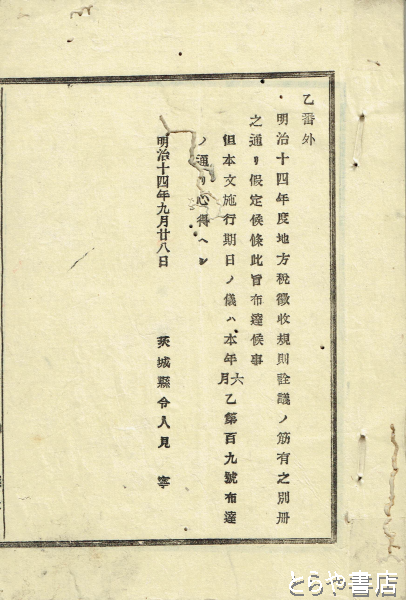 乙番外
明治十四年度地方税徴收規則詮議ノ筋有之別册
之通リ假定候條此旨布達候事
但本文施行期日ノ儀ハ本年六月乙第百九號布達
ノ通リ心得ヘシ
明治十四年九月廿八日
茨城縣令人見寧
とらや書店